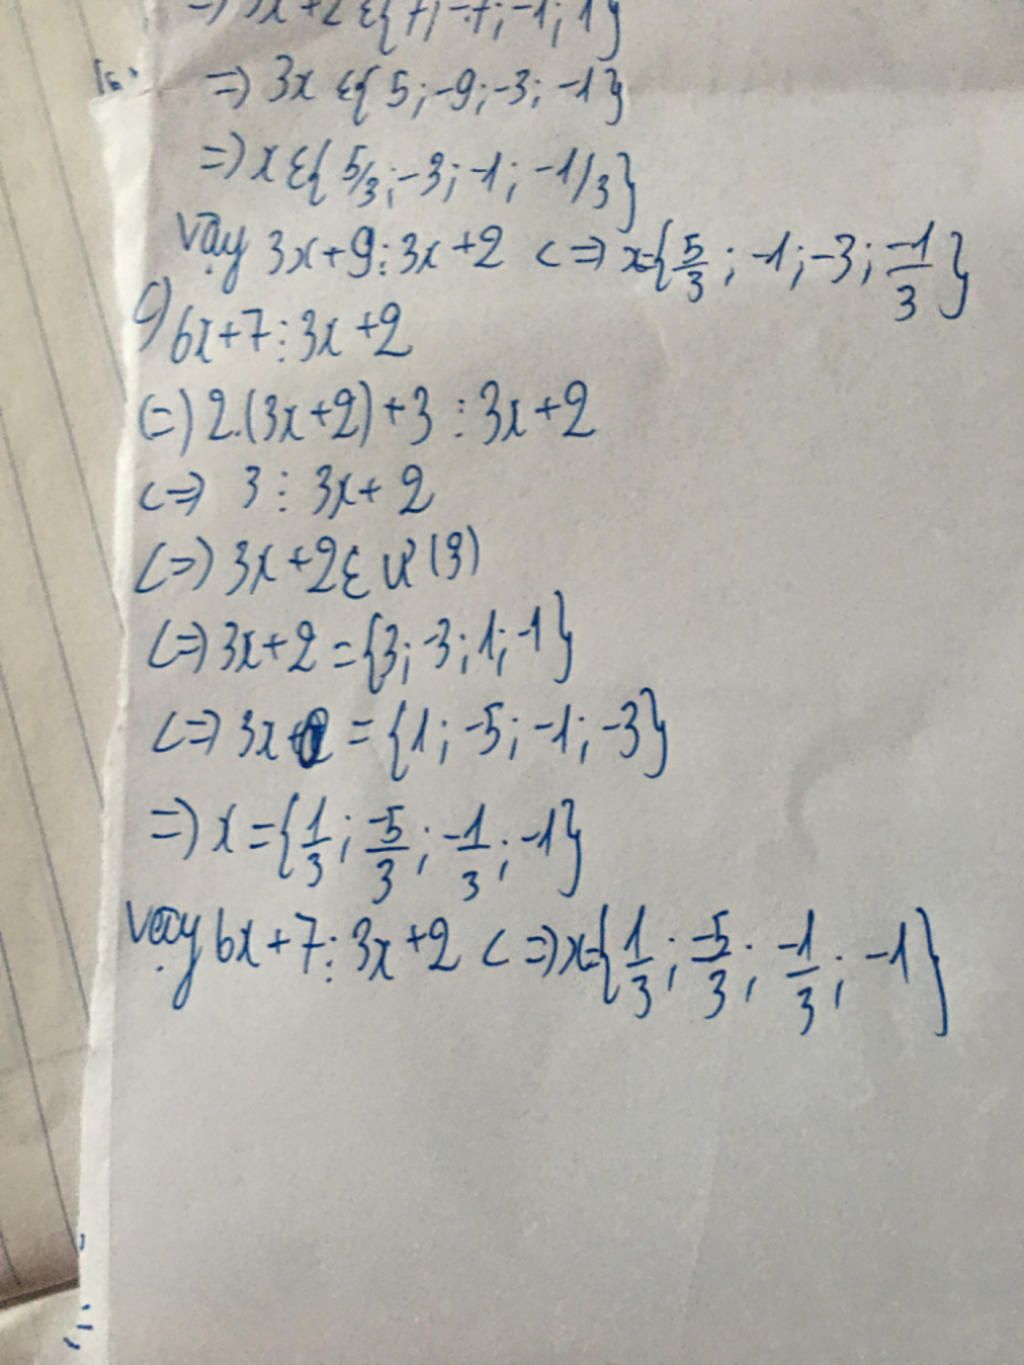 => 3x+2 ε{7; -7; -1; 1}
=> 3x ε{5; -9; -3; -1}
=> x ε{5/3; -3; -1; -1/3}
Vậy 3x+9 ⋮ 3x+2 <=> x={5/3; -1; -3; -1/3}
c) 6x+7 ⋮ 3x+2
(=) 2.(3x+2)+3 ⋮ 3x+2
<=> 3 ⋮ 3x+2
<=> 3x+2 ε Ư(3)
<=> 3x+2 = {3; -3; 1; -1}
<=> 3x = {1; -5; -1; -3}
=> x = {1/3; -5/3; -1/3; -1}
Vậy 6x+7 ⋮ 3x+2 <=> x={1/3; -5/3; -1/3; -1}